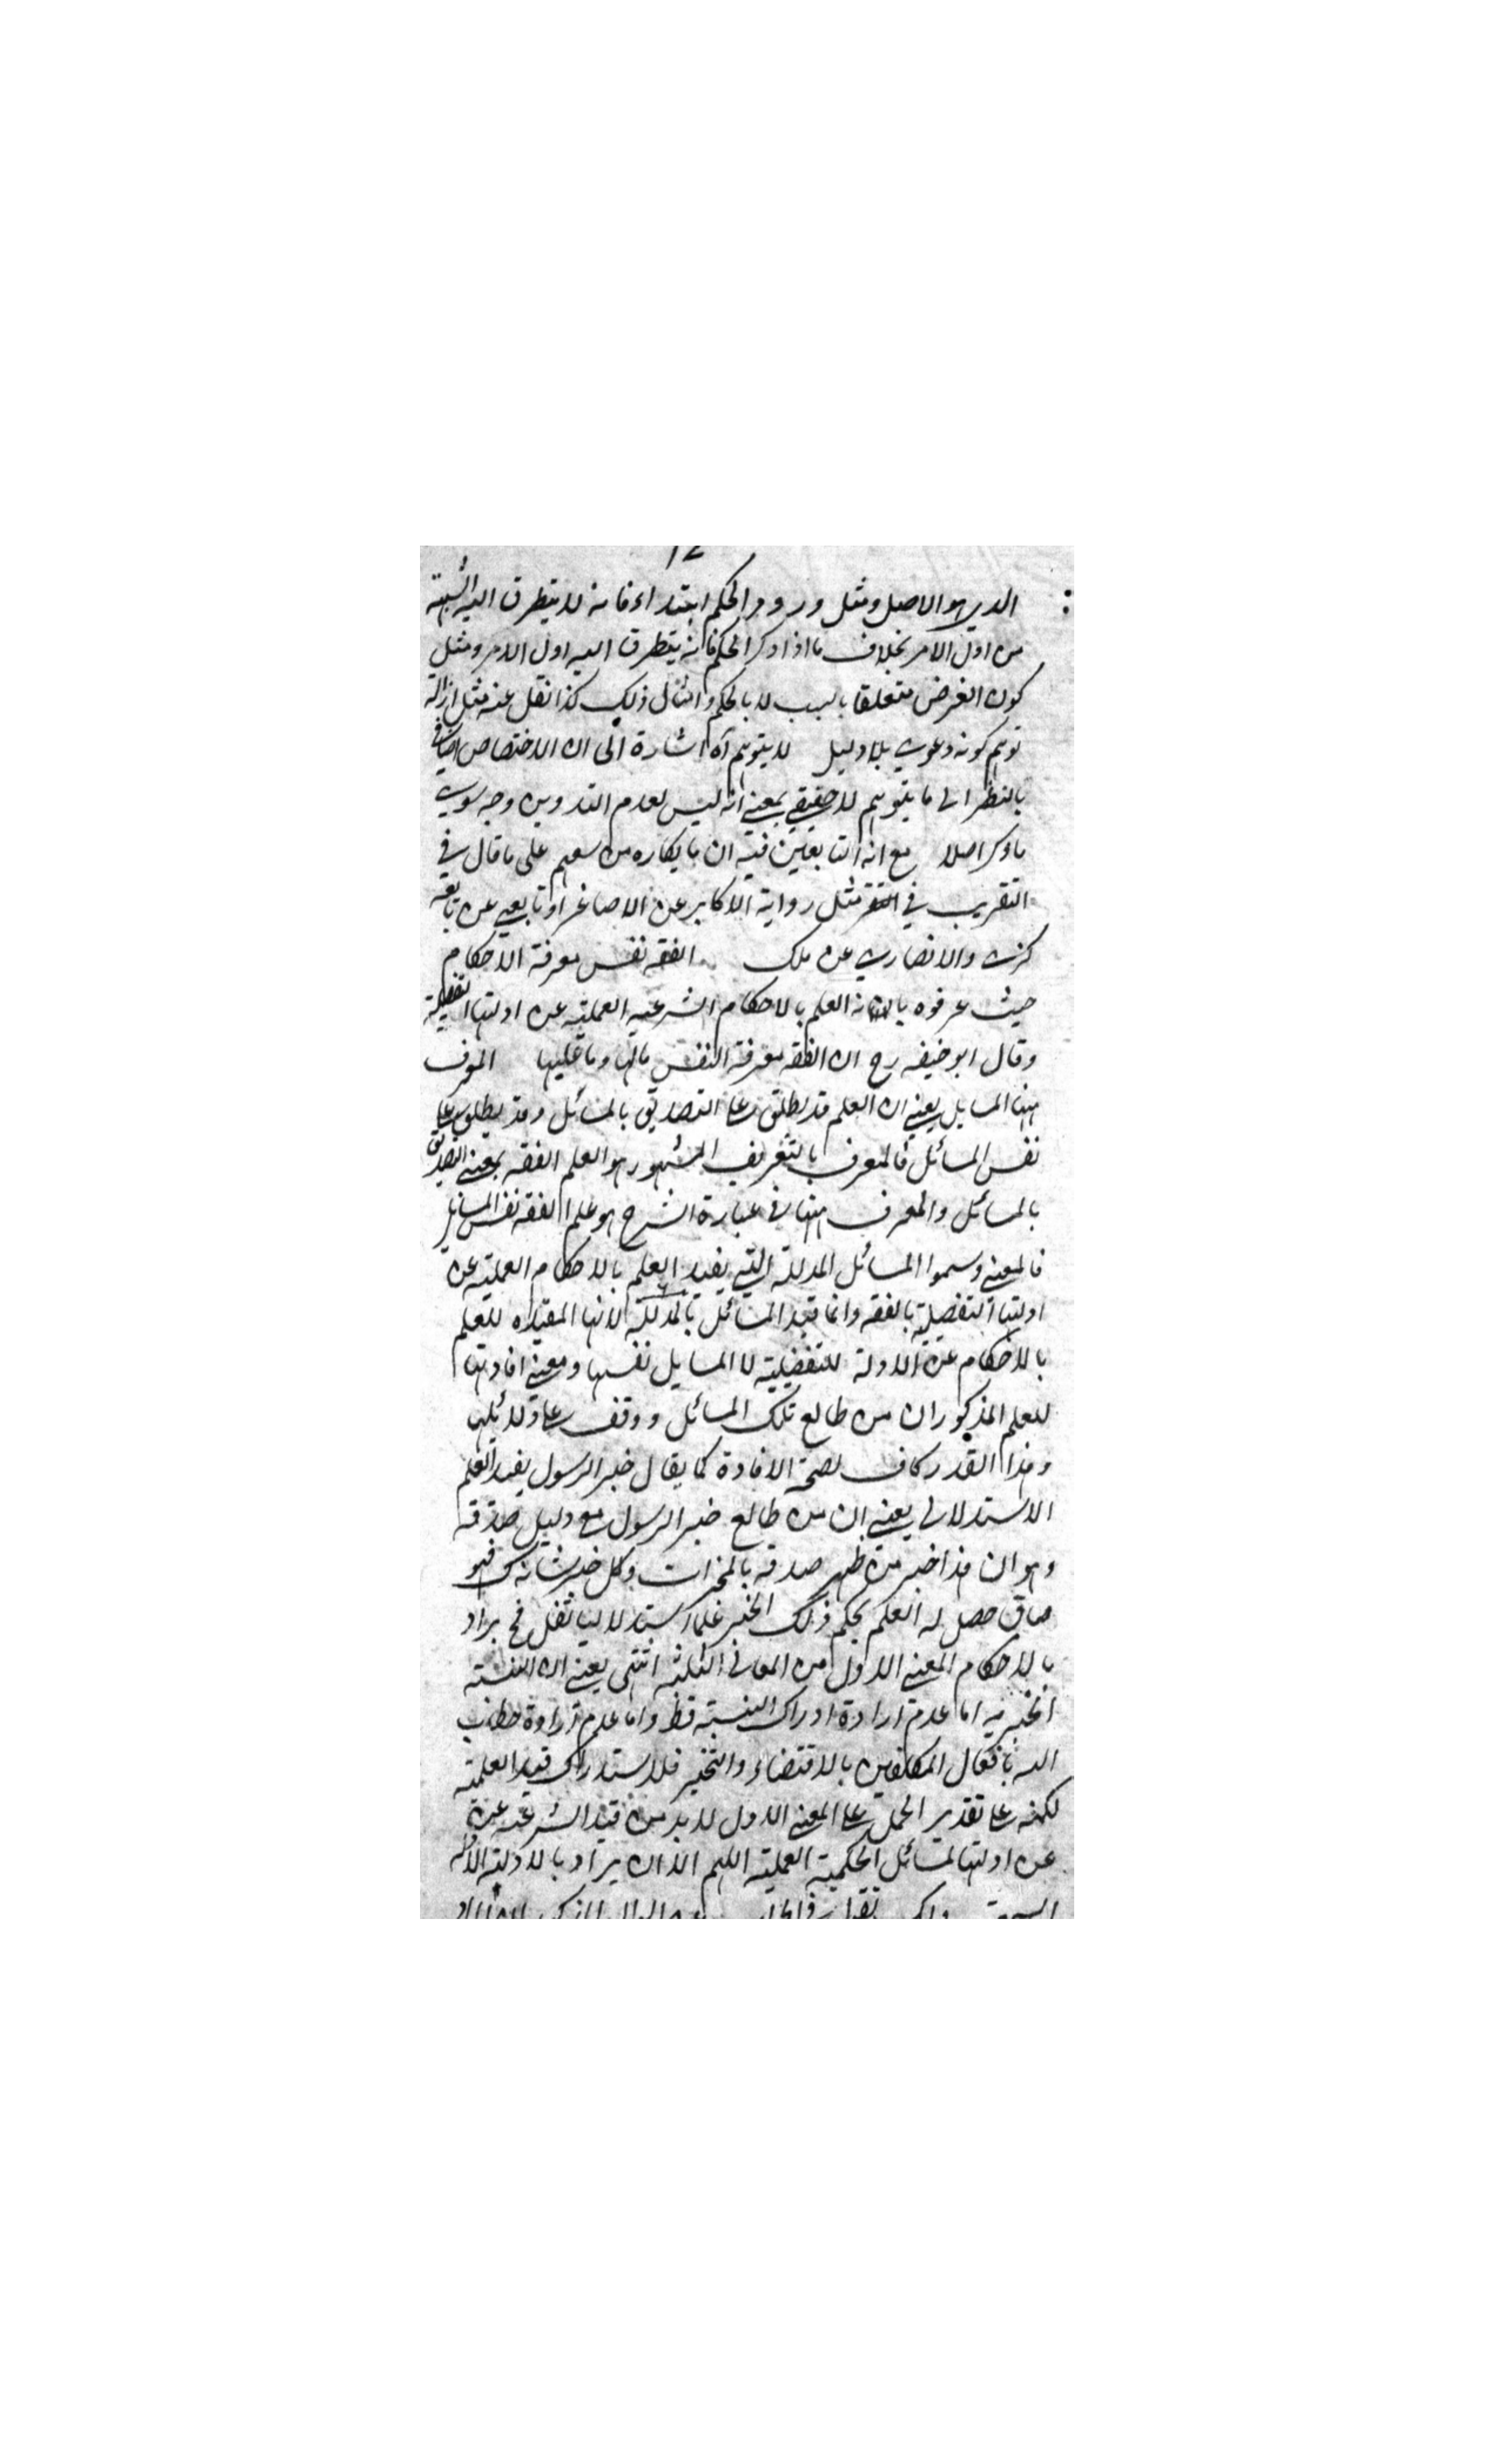 الذي هو الاصل ومثل ورود الحكم ابتداء فانه لا يتطرق اليه الشبهة
من اول الامر بخلاف ما اذا ذكر الحكم فانه يتطرق اليه اول الامر ومثل
كون الغرض متعلقا بالسبب لا بالحكم وامثال ذلك كذا نقل عنه مثل ازالة
توهم كونه دعوى بلا دليل لا يتوهم آه اشارة الى ان الاختصاص اضافي
بالنظر الى ما يتوهم لا حقيقي بمعنى انه ليس لعدم التدوين وجه سوى
ما ذكر اصلا مع انه من التابعين فيه ان على ما قال في
التقريب في مثل رواية الاكابر عن الاصاغر او تابعي عن تابعه
والانصاري عن ملك الفقه نفس معرفة الاحكام
حيث عرفوه بانه العلم بالاحكام الشرعية العملية عن ادلتها التفصيلية
وقال ابو حنيفه رح ان الفقه معرفة النفس مالها وما عليها المعرف
ههنا المسايل يعني ان العلم قد يطلق على التصديق بالمسائل وقد يطلق على
نفس المسائل فالمعرف بالتعريف المشهور هو العلم الفقه بمعنى التصديق
بالمسائل والمعرف ههنا في عبارة الشرح هو علم الفقه نفس المسائل
فالمعنى وسموا المسائل المدللة التي يفيد العلم بالاحكام العملية عن
ادلتها التفصيلية بالفقه وانما قيد المسائل بالمدللة لانها المفيدة للعلم
بالاحكام عن الادلة التفصيلية لا المسايل نفسها ومعنى افادتها
للعلم المذكور ان من طالع تلك المسائل ووقف على دلائلها
وهذا القدر كاف لصحة الافادة كما يقال خبر الرسول يفيد العلم
الاستدلالي يعني ان من طالع خبر الرسول مع دليل صدقه
وهو ان هذا خبر من ظهر صدقه بالمعجزات وكل خبر شانه كك فهو
صادق حصل له العلم بحكم ذلك الخبر علما استدلاليا فح يراد
بالاحكام المعنى الاول من المعاني الثلثة انتهى يعني ان النسبة
الخبرية اما عدم ارادة ادراك النسبة فظ واما عدم ارادة خطاب
الله بافعال المكلفين بالاقتضاء والتخيير فلاستدراك قيد العملية
لكنه على تقدير الحمل على المعنى الاول لا بد من قيد الشرعية عن
عن ادلتها المسائل الحكمية العملية اللهم الا ان يراد بالادلة الادلة